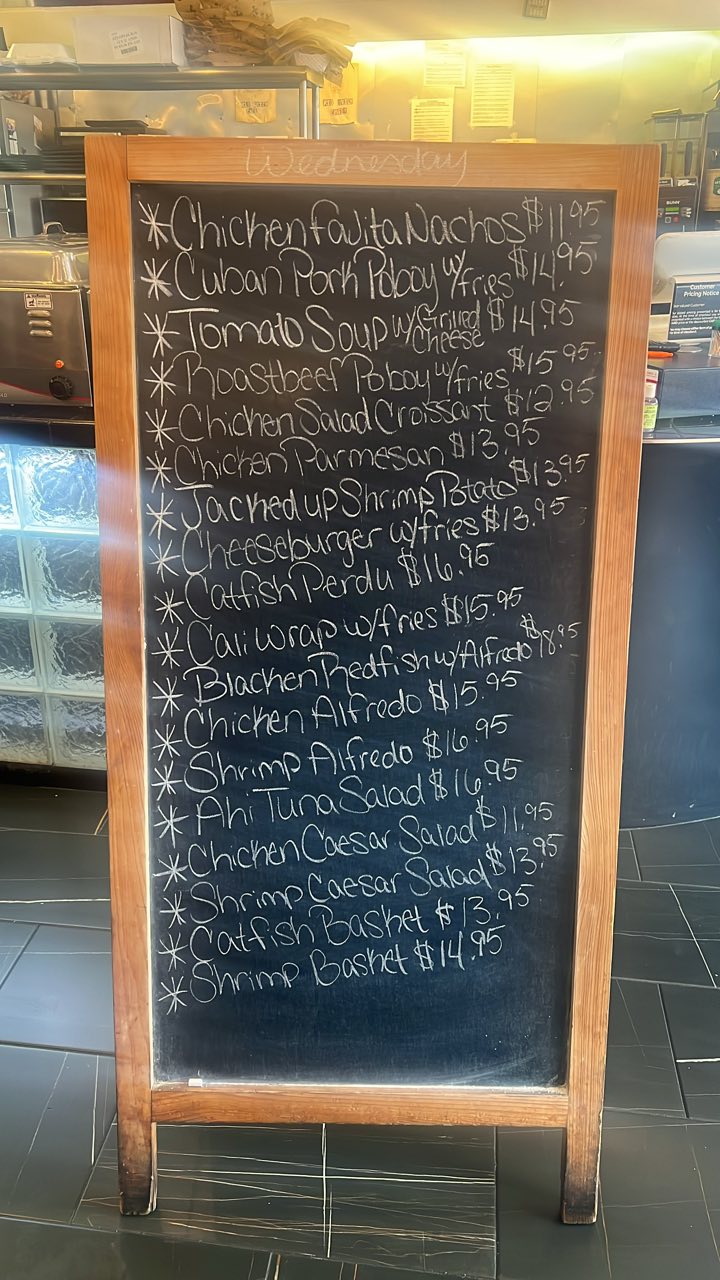 Wednesday
* Chicken Fajita Nachos $11.95
* Cuban Pork Poboy w/ fries $14.95
* Tomato Soup w/ Grilled Cheese $14.95
* Roastbeef Poboy w/ fries $15.95
* Chicken Salad Croissant $12.95
* Chicken Parmesan $13.95
* Jacked up Shrimp Potato $13.95
* Cheeseburger w/ fries $13.95
* Catfish Perdu $16.95
* Cali wrap w/ fries $15.95
* Blacken Redfish w/ Alfredo $18.95
* Chicken Alfredo $15.95
* Shrimp Alfredo $16.95
* Ahi Tuna Salad $16.95
* Chicken Caesar Salad $11.95
* Shrimp Caesar Salad $13.95
* Catfish Basket $13.95
* Shrimp Basket $14.95
BUNN
Customer
Pricing Notice